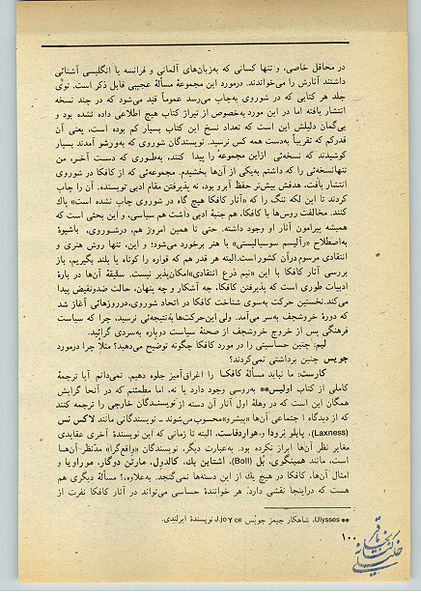 در محافل خاصی، و تنها کسانی که به‌زبان‌های آلمانی و فرانسه یا انگلیسی آشنائی
داشتند آثارش را می‌خواندند. درمورد این مجموعه مسألهٔ عجیبی قابل ذکر است. توی
جلد هر کتابی که در شوروی به‌چاپ می‌رسد عموماً قید می‌شود که در چند نسخه
انتشار یافته اما در این مورد به‌خصوص از تیراژ کتاب هیچ اطلاعی داده نشده بود و
بی‌گمان دلیلش این است که تعداد نسخ این کتاب بسیار کم بوده است، یعنی آن
قدرکم که تقریباً به‌دست همه کس نرسید. نویسندگان شوروی که به‌ورشو آمدند بسیار
کوشیدند که نسخه‌ئی ازاین مجموعه را پیدا کنند، به‌طوری که دست آخر، من
تنهانسخه‌ئی را که داشتم به‌یکی از آن‌ها بخشیدم. مجموعه‌ئی که از کافکا در شوروی
انتشار یافت، هدفش بیش‌تر حفظ آبرو بود، نه پذیرفتن مقام ادبی نویسنده. آن را چاپ
کردند تا این لکه ننگ را که «آثار کافکا هیچ گاه در شوروی چاپ نشده است» پاك
کنند. مخالفت روس‌ها با کافکا، هم جنبهٔ ادبی داشت هم سیاسی، و این بحثی است که
همیشه پیرامون آثار او وجود داشته. حتی تا همین امروز هم، درشوروی، باشیوهٔ
به‌اصطلاح «رآلیسم سوسیالیستی» با هنر برخورد می‌شود؛ و این، تنها روش هنری و
انتقادی مرسوم‌درآن کشور است.البته هر قدر هم که قواره را کوتاه یا بلند بگیریم، باز
بررسی آثار کافکا با این «نیم ذرع انتقادی»امکان‌پذیر نیست. سلیقهٔ آن‌ها در بارهٔ
ادبیات طوری است که پذیرفتن کافکا، چه آشکار و چه پنهان، حالت ضدونقیض پیدا
می‌کند.نخستین حرکت به‌سوی شناخت کافکا در اتحاد شوروی،درروزهائی آغاز شد
که دورهٔ خروشچف به‌سر می‌آمد. ولی این‌حرکت‌ها به‌نتیجه‌ئی نرسید، چرا که سیاست
فرهنگی پس از خروج خروشچف از صحنهٔ سیاست دوباره به‌سردی گرائید.
لیم: چنین حساسیتی را در مورد کافکا چگونه توضیح می‌دهید؟ مثلاً چرا درمورد
جویس چنین برداشتی نمی‌کردند؟
کارست: ما نباید مسألهٔ کافکا را اغراق‌آمیز جلوه دهیم. نمی‌دانم آیا ترجمهٔ
کاملی از کتاب اولیس** به‌روسی وجود دارد یا نه، اما مطمئنم که در آنجا گرایش
همگان این است که در وهلهٔ اول آثار آن دسته از نویسندگان خارجی را ترجمه کنند
که از دیدگاه اجتماعی آن‌ها «پیشرو»محسوب‌می‌شوند ـ نویسندگانی مانند لاکس نس
(Laxness)، پابلو نرودا و،هواردفاست. البته تا زمانی که این نویسندهٔ آخری عقایدی
مغایر نظر آن‌ها ابراز نکرده بود. به‌عبارت دیگر، نویسندگان «واقع‌گرا» مدنظر آن‌ها
است، مانند همینگوی، بُل (Boll)، اشتاین بك، کالدول، مارتن دوگار، موراویا و
امثال آن‌ها، کافکا در هیچ یك از این دسته‌ها نمی‌گنجد. به‌علاوه،! مسألهٔ دیگری هم
هست که دراینجا نقشی دارد: هر خوانندهٔ حساسی می‌تواند در آثار کافکا نفرت از
** Ulysses، شاهکار جیمز جویس J.joyce نویسندهٔ ایرلندی.
۱۰۰